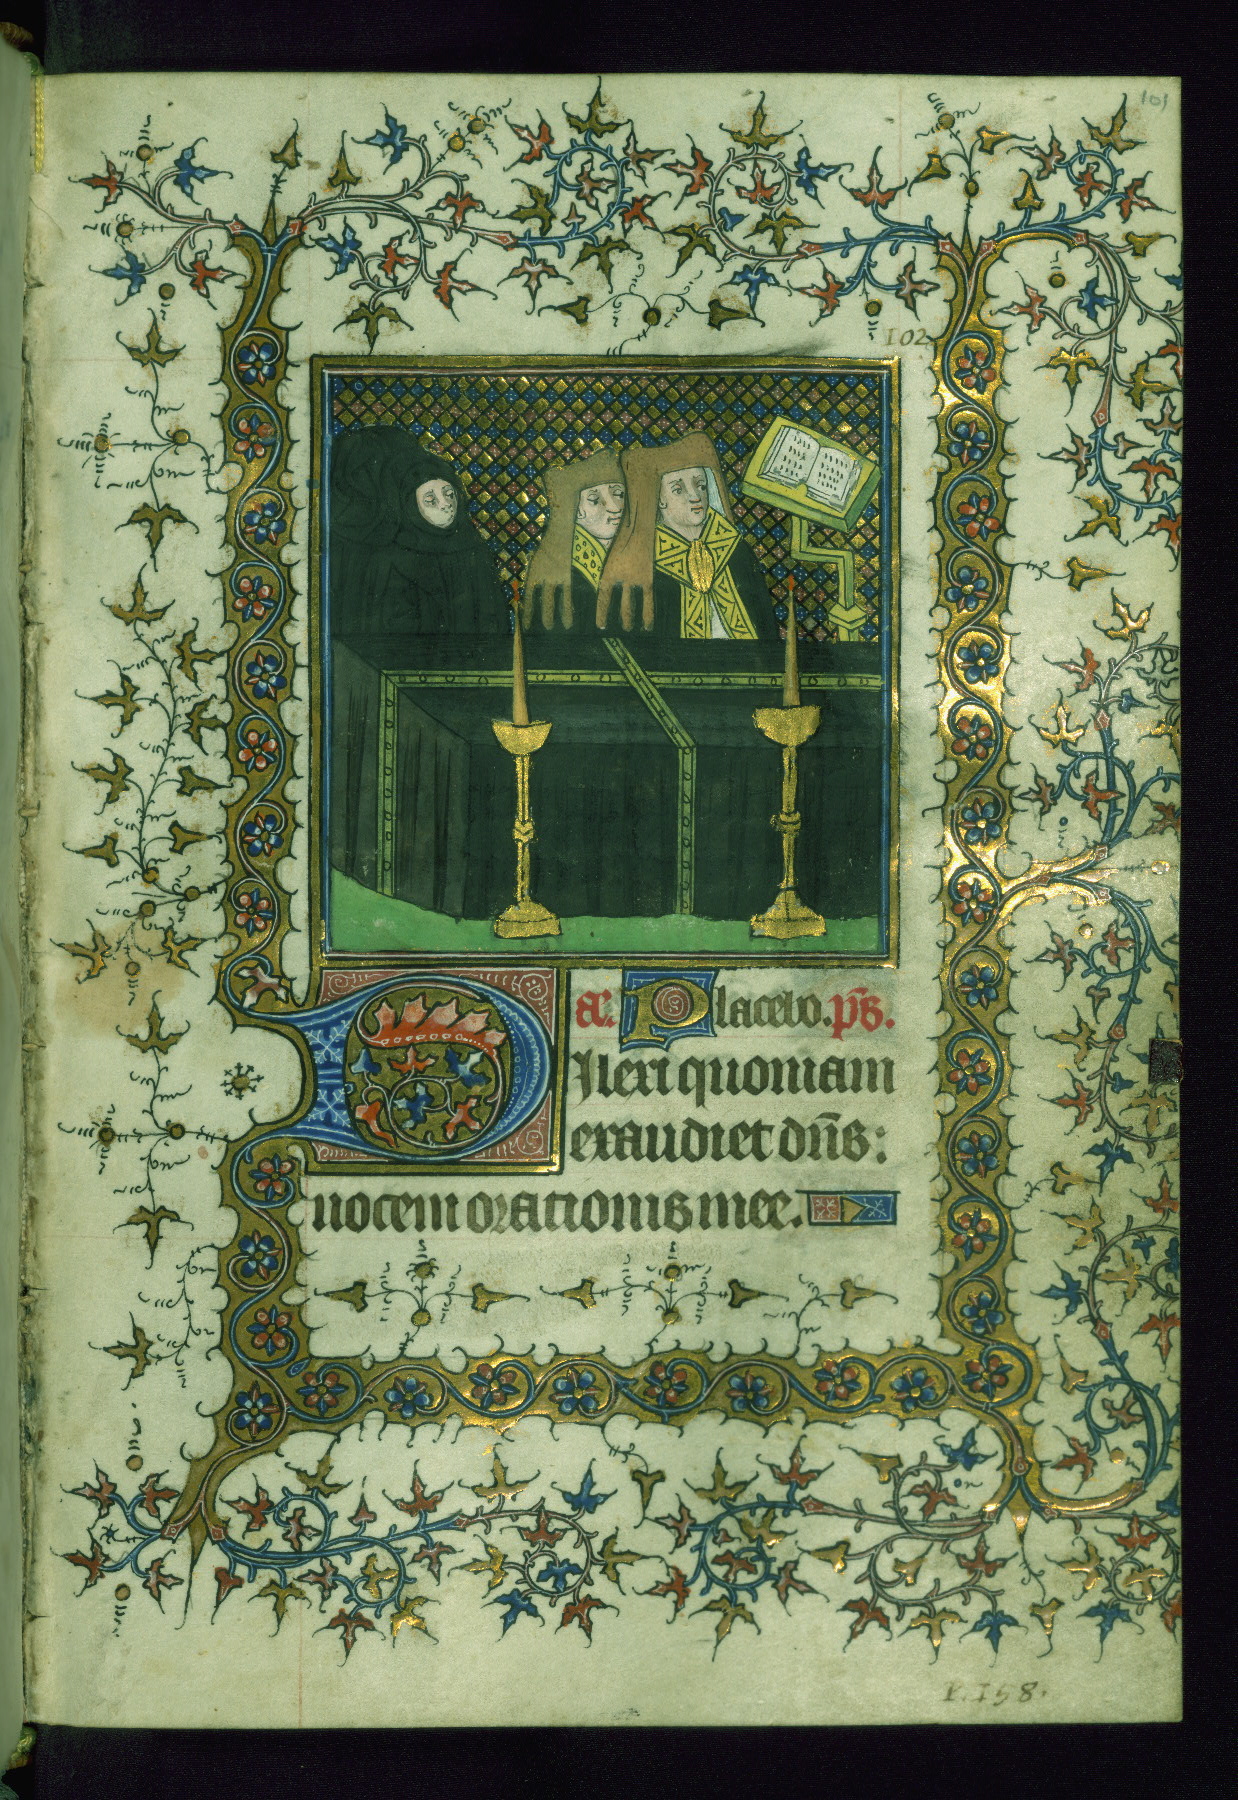 101
102
a͞. Placebo. p͞s.
Dilexi quoniam
exaudiet dn͞s:
uocem orationis mee.
P. 158.